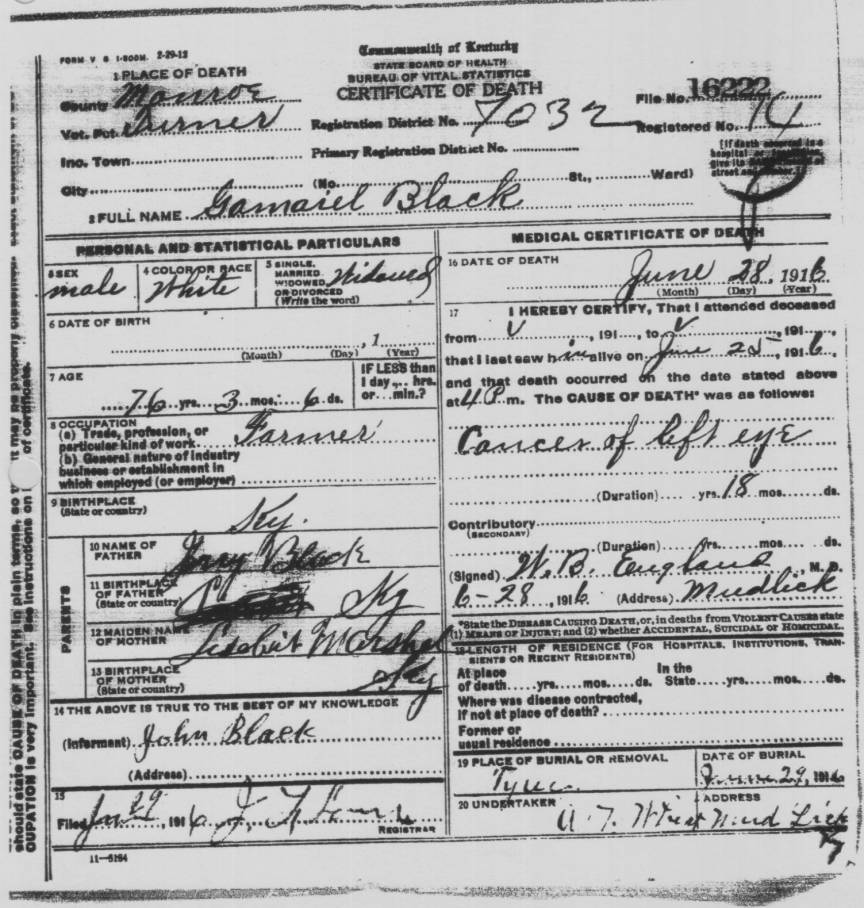 FORM V S 1-500M. 2-29-12
Commonwealth of Kentucky
STATE BOARD OF HEALTH
BUREAU OF VITAL STATISTICS
CERTIFICATE OF DEATH
1 PLACE OF DEATH
County Monroe
Vot. Pct. Turner
Inc. Town
City
Registration District No. 7032
Primary Registration District No.
(No. St., Ward)
File No. 16222
Registered No. 14
[If death occurred in a
hospital or
give its
street and number.]
2 FULL NAME Gamariel Black
PERSONAL AND STATISTICAL PARTICULARS
3 SEX
male
4 COLOR OR RACE
White
5 SINGLE,
MARRIED,
WIDOWED,
OR DIVORCED
(Write the word)
Widowed
6 DATE OF BIRTH
, 1
(Month) (Day) (Year)
7 AGE
76 yrs. 3 mos. 6 ds.
IF LESS than
1 day, hrs.
or min.?
8 OCCUPATION
(a) Trade, profession, or
particular kind of work Farmer
(b) General nature of industry
business or establishment in
which employed (or employer)
9 BIRTHPLACE
(State or country)
Ky.
PARENTS
10 NAME OF
FATHER
Jerry Black
11 BIRTHPLACE
OF FATHER
(State or country)
Ky
12 MAIDEN NAME
OF MOTHER
Marshel
13 BIRTHPLACE
OF MOTHER
(State or country)
Ky
14 THE ABOVE IS TRUE TO THE BEST OF MY KNOWLEDGE
(Informant) John Black
(Address)
15
Filed 29, 1916
REGISTRAR
11-5164
MEDICAL CERTIFICATE OF DEATH
16 DATE OF DEATH
June 28, 1916
(Month) (Day) (Year)
17 I HEREBY CERTIFY, That I attended deceased
from , 191 , to , 191 ,
that I last saw him alive on June 25, 1916,
and that death occurred on the date stated above
at 4 P.m. The CAUSE OF DEATH* was as follows:
Cancer of left eye
(Duration) yrs. 18 mos. ds.
Contributory
(SECONDARY)
(Duration) yrs. mos. ds.
(Signed) W. B. England, M. D.
6-28, 1916 (Address) Mudlick
*State the DISEASE CAUSING DEATH, or, in deaths from VIOLENT CAUSES state
(1) MEANS OF INJURY; and (2) whether ACCIDENTAL, SUICIDAL OR HOMICIDAL.
18 LENGTH OF RESIDENCE (FOR HOSPITALS, INSTITUTIONS, TRAN-
SIENTS OR RECENT RESIDENTS)
At place In the
of death yrs. mos. ds. State yrs. mos. ds.
Where was disease contracted,
if not at place of death?
Former or
usual residence
19 PLACE OF BURIAL OR REMOVAL
DATE OF BURIAL
June 29, 1916
20 UNDERTAKER
ADDRESS
Mud Lick
Ky
should state CAUSE OF DEATH in plain terms, so
it may be properly
OUPATION is very important. See instructions on
of certificate.